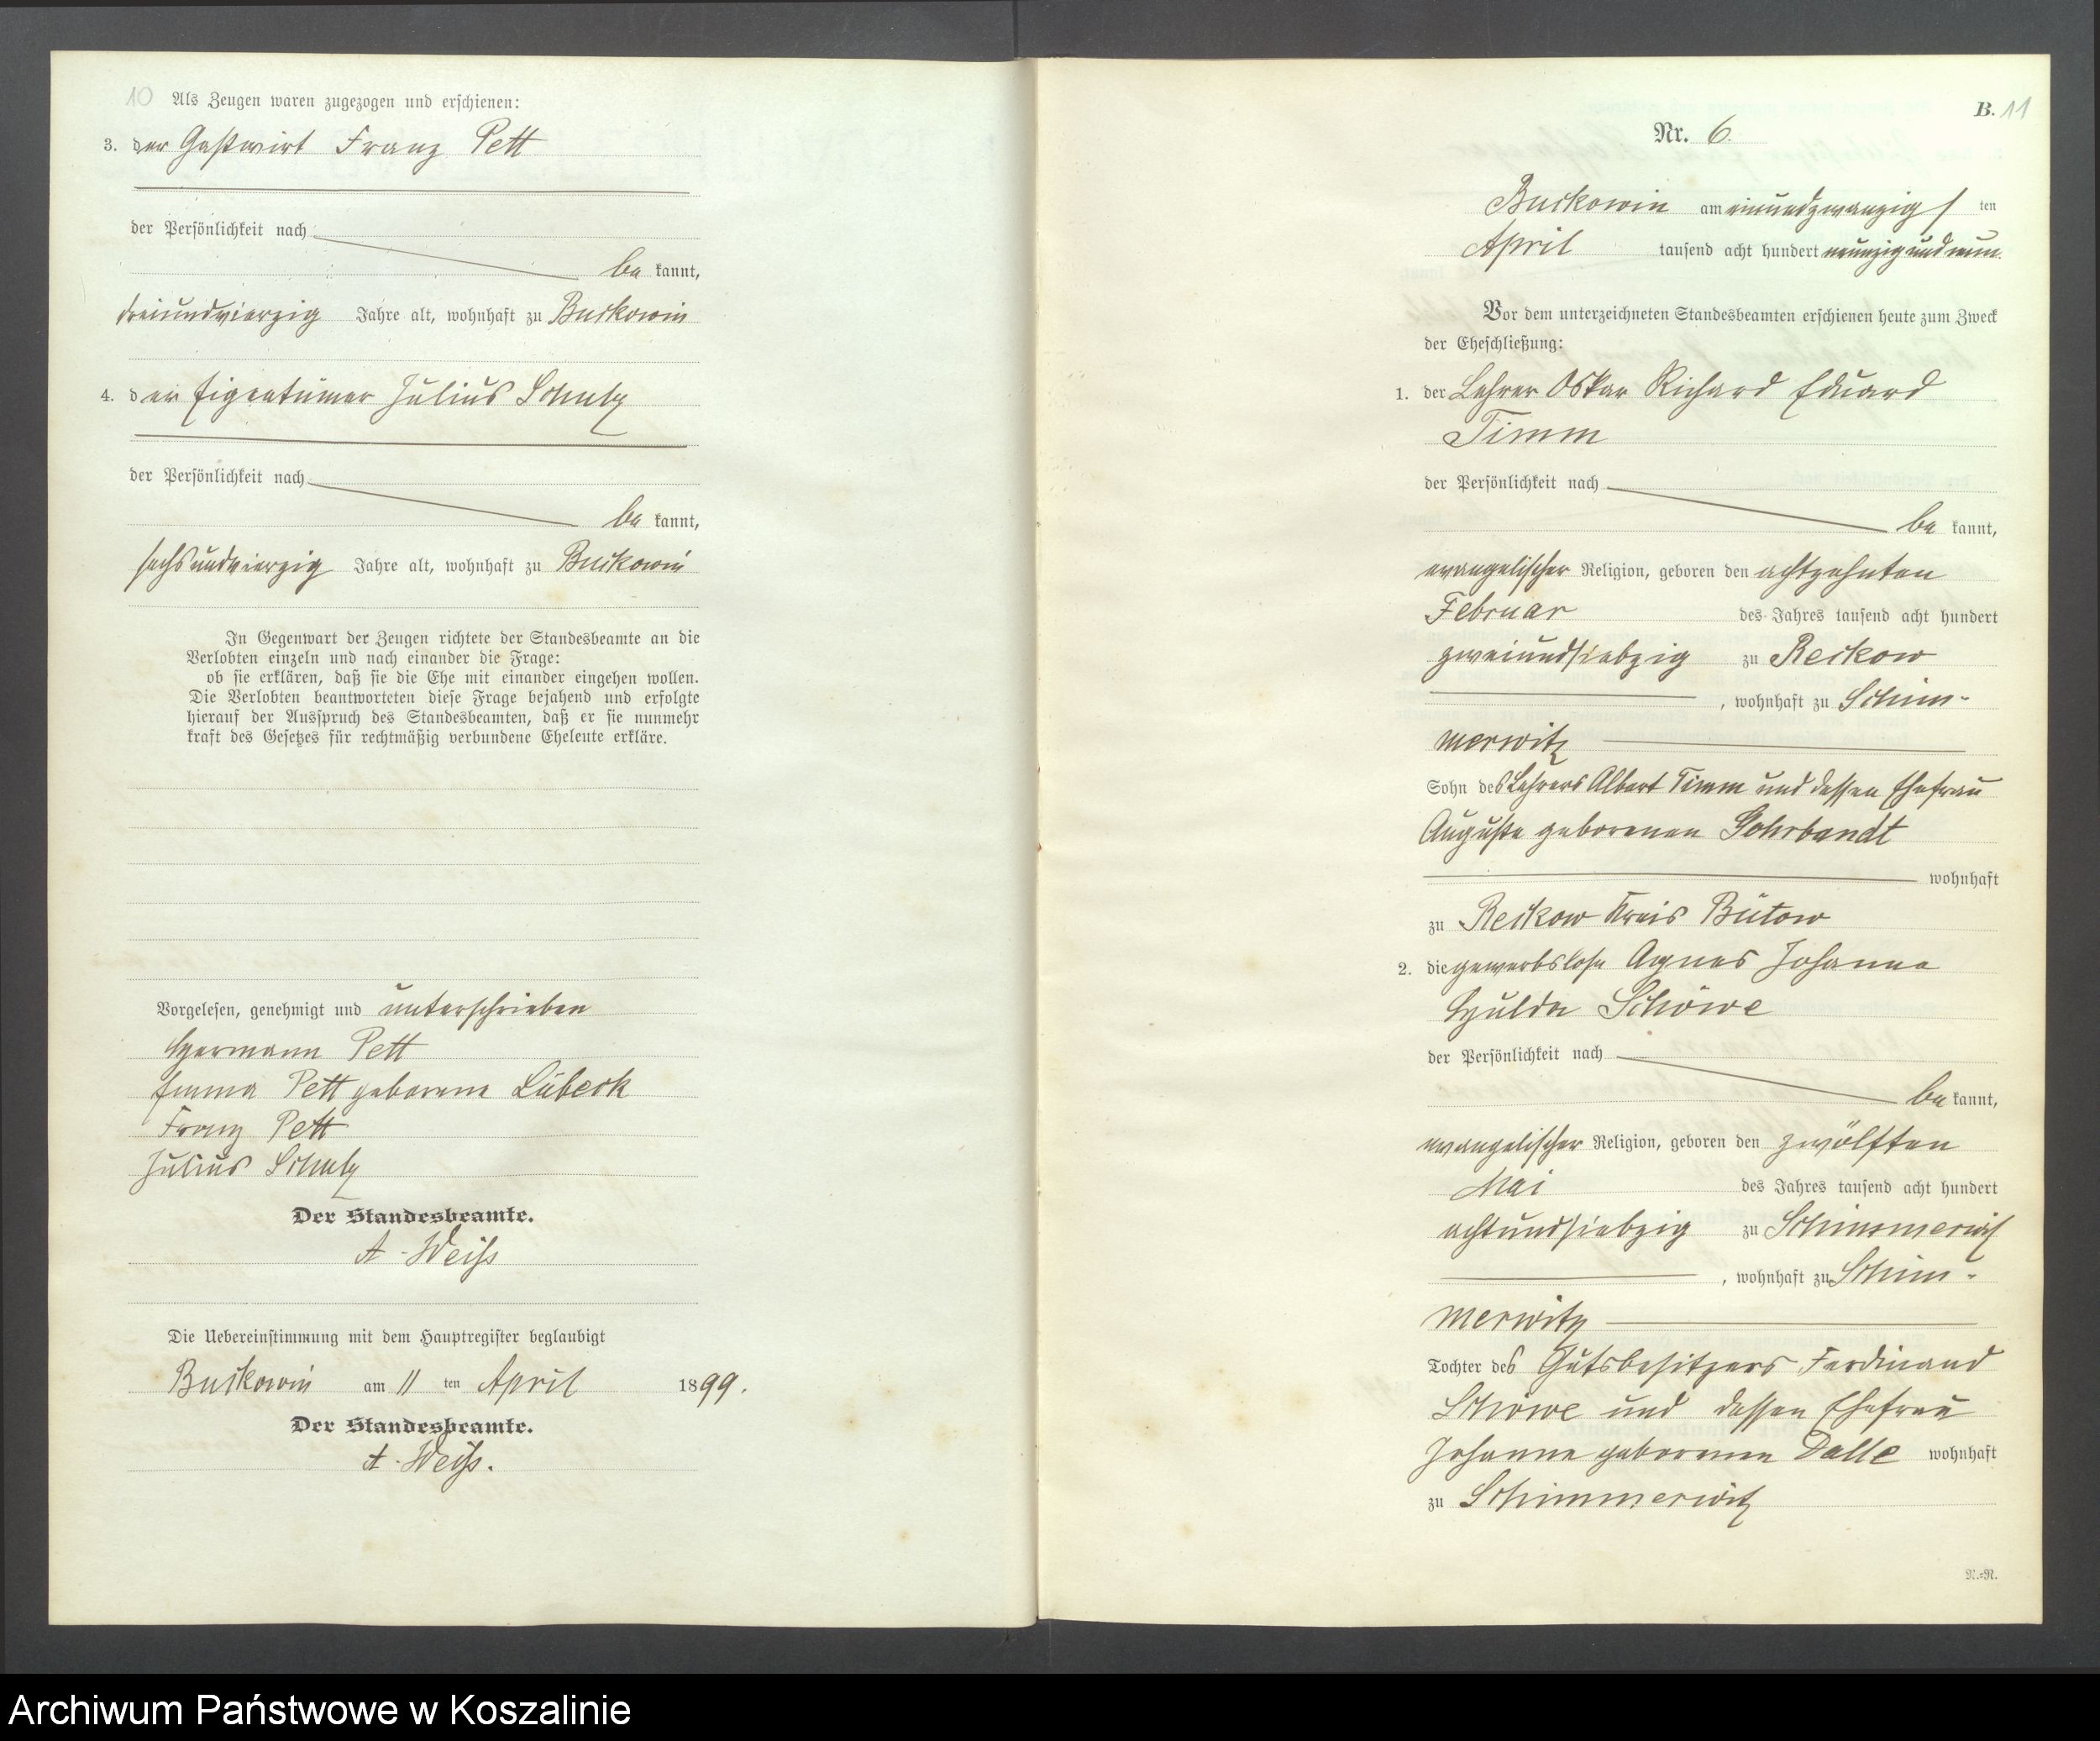 10 Als Zeugen waren zugezogen und erschienen:
3. der Gastwirt Franz Pett
der Persönlichkeit nach
be kannt,
dreiundvierzig Jahre alt, wohnhaft zu Buckowin
4. der Eigentümer Julius Schulz
der Persönlichkeit nach
be kannt,
sechsundvierzig Jahre alt, wohnhaft zu Buckowin
In Gegenwart der Zeugen richtete der Standesbeamte an die
Verlobten einzeln und nach einander die Frage:
ob sie erklären, daß sie die Ehe mit einander eingehen wollen.
Die Verlobten beantworteten diese Frage bejahend und erfolgte
hierauf der Ausspruch des Standesbeamten, daß er sie nunmehr
kraft des Gesetzes für rechtmäßig verbundene Eheleute erkläre.
Vorgelesen, genehmigt und unterschrieben
Hermann Pett
Emma Pett geborene Lübeck
Franz Pett
Julius Schulz
Der Standesbeamte.
A. Weiß
Die Uebereinstimmung mit dem Hauptregister beglaubigt
Buckowin am 11 ten April 1899.
Der Standesbeamte.
A. Weiß.
B. 11
Nr. 6.
Buckowin am einundzwanzigs ten
April tausend acht hundert neunzig und neun.
Vor dem unterzeichneten Standesbeamten erschienen heute zum Zweck
der Eheschließung:
1. der Lehrer Oskar Richard Eduard
Timm
der Persönlichkeit nach
be kannt,
evangelischer Religion, geboren den achtzehnten
Februar des Jahres tausend acht hundert
zweiundsiebzig zu Reckow
, wohnhaft zu Schim-
merwitz
Sohn des Lehrers Albert Timm und dessen Ehefrau
Auguste geborenen Gohrbandt
wohnhaft
zu Reckow Kreis Bütow
2. die gewerbslose Agnes Johanna
Hulda Schöwe
der Persönlichkeit nach
be kannt,
evangelischer Religion, geboren den zwölften
Mai des Jahres tausend acht hundert
achtundsiebzig zu Schimmerwitz
, wohnhaft zu Schim-
merwitz
Tochter des Gutsbesitzers Ferdinand
Schöwe und dessen Ehefrau
Johanne geborenen Dalle wohnhaft
zu Schimmerwitz
N.=N.
Archiwum Państwowe w Koszalinie